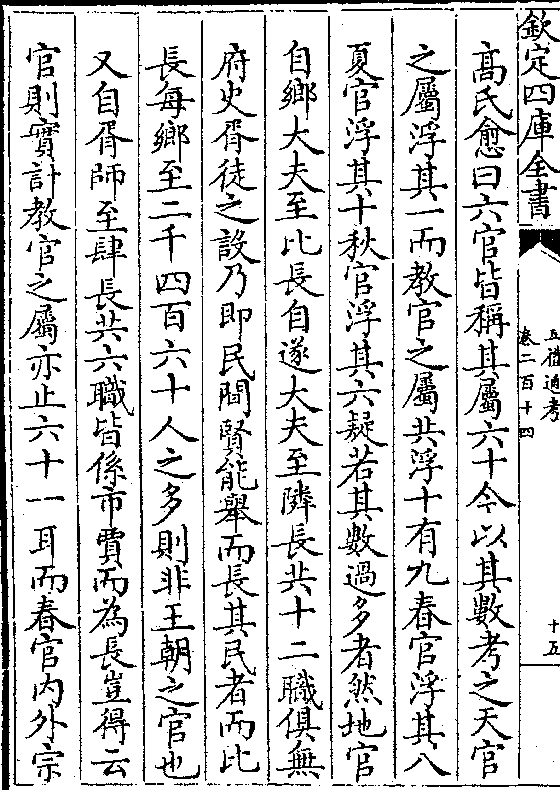 欽定四庫全書
五禮通考
卷二百十四
十五
髙氏愈曰六官皆稱其屬六十今以其數考之天官
之屬浮其一而教官之屬共浮十有九春官浮其八
夏官浮其十秋官浮其六疑若其數過多者然地官
自鄉大夫至比長自遂大夫至隣長共十二職俱無
府史胥徒之設乃即民間賢能舉而長其民者而比
長每鄉至二千四百六十人之多則非王朝之官也
又自胥師至肆長共六職皆係市賈而為長豈得云
官則實計教官之屬亦止六十一耳而春官内外宗